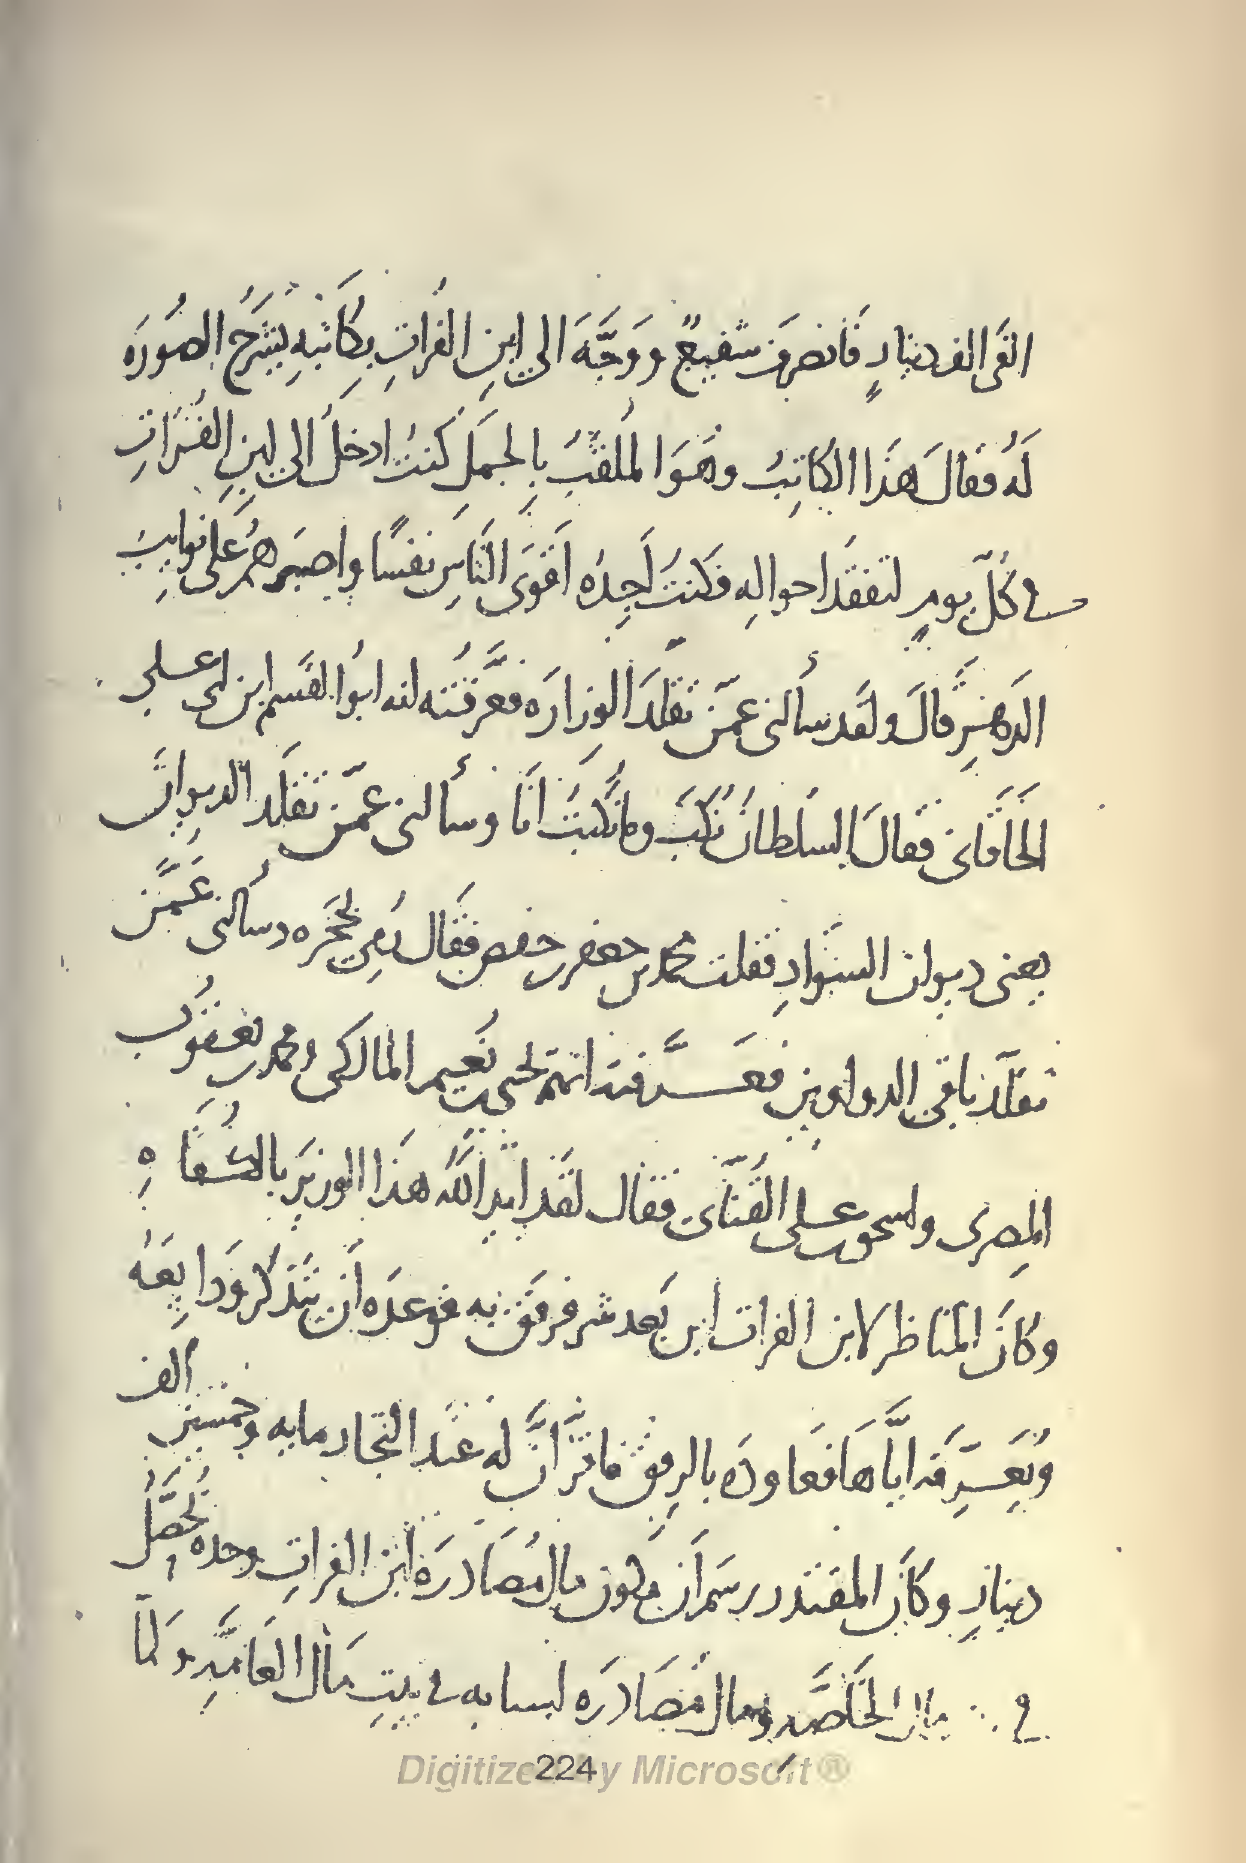 الفى الف دينارٍ فَانصرفَ شفيعٌ ووَجَّهَ الى ابنِ الفُراتِ بِكاتبهِ يَشرَحُ الصُورَه
لَهُ فقالَ هَذَا الكاتِبُ وهُوَ المُلقبُ بِالجمَلِ كنتُ ادخلُ الى ابنِ الفُرَاتِ
فى كُلّ يومٍ لتفقد احوالهِ فكنتُ أَجِدُه أَقوَى النَّاسِ نفسًا واصبَرهُم على نوايبُ
الدَهرِ قالَ ولقَد سألنى عمّن تقلّدَ الوزارَه فعرَّفتُه انه ابُوالقسم ابن ابى على
الخَاقانى فقالَ السلطانُ نُكبَ وما نُكبتُ انَا وسألنى عمّن تقلّد الديوانَ
يعنى ديوان السَوادِ فقلت محمد بن جعفر بن حفص فقال رُمِىَ بحَجَره وسألنى عَمَّن
تقلّد باقى الدواوين فعَرَّفته انهم يحيى بن نُعيم المالكى ومحمد بن يعقُوب
المِصرى واسحق بن على القُنّائى فقال لقَد ايدَ اللهُ هذَا الوزيرَ بالكُفَاه
وكانَ المنَاظر لابن الفرات ابن بَعد شر فرفَق به فوعَدَه أَن يتذكر وَدايِعَهُ
ويُعَرِّفه ايَّاها فعاودَه بالرِفق فاقرَّ انَّ له عندَ التجار مايه وخمسين الف
دينارٍ وكانَ المقتدر رسَم أَن يكون مال مُصَادرَه ابن الفراتِ وحده يُحَصَّلُ
فى مال الخَاصَّه ومال مُصَادرَه اسبابه فى بيتِ مَال العَامَّهِ ولمّا
Digitized by Microsoft®
224